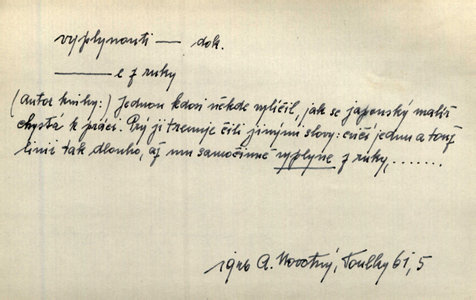 vyplynouti — dok.
——— e z ruky
(Autor knihy:) Jednou kdosi někde vylíčil, jak se japonský malíř
chystá k práci. Prý ji trenuje čili jinými slovy: cvičí jednu a touž
linii tak dlouho, až mu samočinně vyplyne z ruky, .......
1946 A. Novotný, Toulky 61, 5